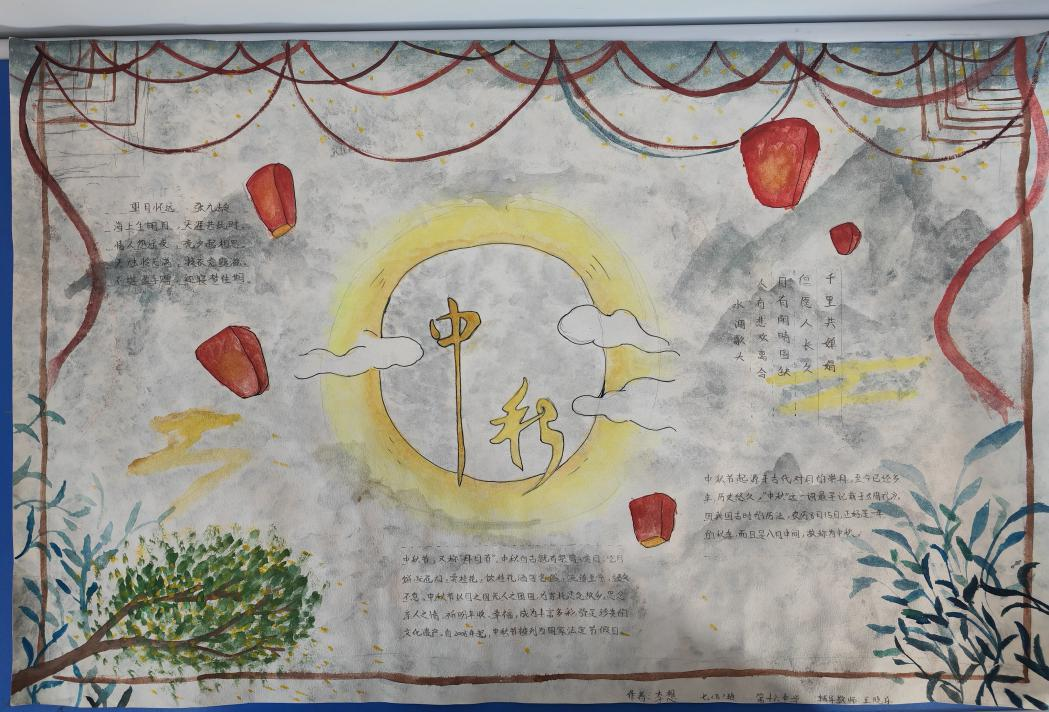 望月怀远 张九龄
海上生明月,天涯共此时。
情人怨遥夜,竟夕起相思。
灭烛怜光满,披衣觉露滋。
不堪盈手赠,还寝梦佳期。
中秋
千里共婵娟
但愿人长久
月有阴晴圆缺
人有悲欢离合
水调歌头
中秋节起源于古代对月的崇拜,至今已经多
年,历史悠久。“中秋”这一词最早记载于《周礼》。
因我国古时的历法,农历8月15日,正好是一年
的秋季,而且是八月中间,故称为中秋。
中秋节,又称“拜月节”。中秋自古就有祭月、赏月、吃月
饼、玩花灯、赏桂花、饮桂花酒等民俗,流传至今,经久
不息。中秋节以月之圆兆人之团圆,为寄托思念故乡,思念
亲人之情,祈盼丰收、幸福,成为丰富多彩、弥足珍贵的
文化遗产。自2008年起,中秋节被列为国家法定节假日。
作者:李想 辅导教师: